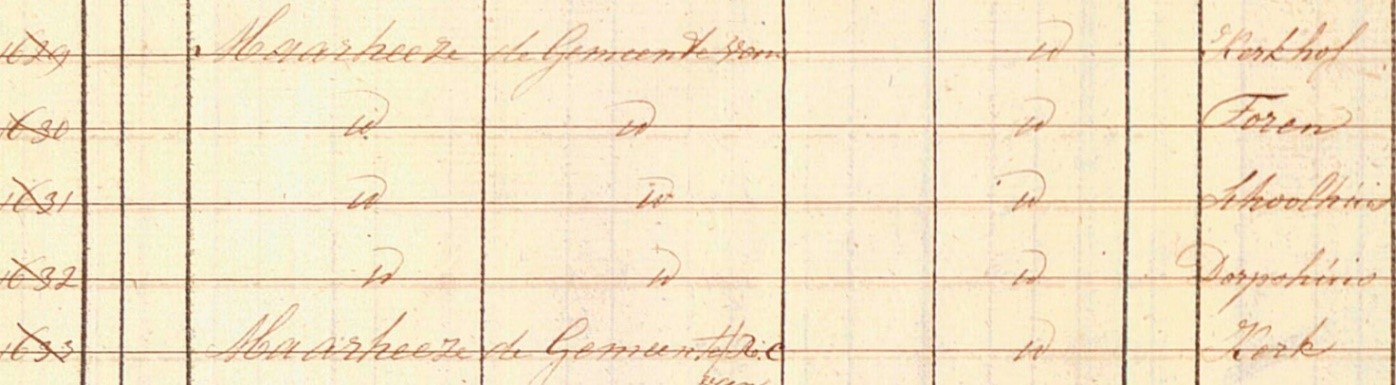 1629 Maarheeze de Gemeente van id Kerkhof
1630 id id id Toren
1631 id id id Schoolhuis
1632 id id id Dorpshuis
1633 Maarheeze de Gemeente id Kerk
van